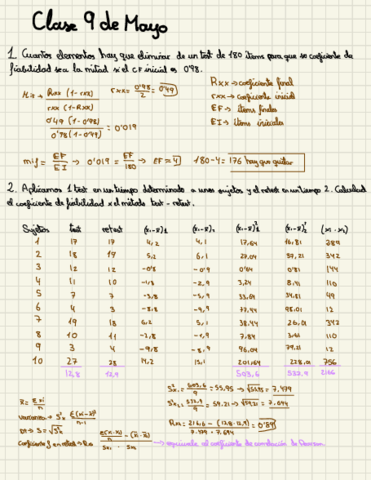 Clase 9 de Mayo
1. Cuantos elementos hay que eliminar de un test de 180 items para que su coeficiente de
fiabilidad sea la mitad si el CF inicial es 0'98.
Rxx (1-rxx)
rxx (1-Rxx)
rxx = 0'98 / 2 = 0'49
Rxx → coeficiente final
rxx → coeficiente inicial
EF → items finales
EI → items iniciales
0'49 (1-0'98)
0'98 (1-0'49) = 0'019
EF / EI → 0'019 = EF / 180 → EF = 4 180-4 = 176 hay que quitar
2. Aplicamos 1 test en un tiempo determinado a unos sujetos y el retest en un tiempo 2. Calculad
el coeficiente de fiabilidad x el método test - retest.
Sujetos test retest
1 17 17 4,2 4,1 17,64 16,81 289
2 18 19 5,2 6,1 27,04 37,21 342
3 12 12 -0'8 -0'9 0'64 0'81 144
4 11 10 -1,8 -2,9 3,24 8,41 110
5 7 7 -5,8 -5,9 33,64 34,81 49
6 4 3 -8,8 -9,9 77,44 98,01 12
7 19 18 6,2 5,1 38,44 26,01 342
8 10 11 -2,8 -1,9 7,84 3,61 110
9 3 4 -9,8 -8,9 96,04 79,21 12
10 27 28 14,2 15,1 201,64 228,01 756
12,8 12,9 503,6 532,9 2166
503,6 / 9 = 55,95 → √55,95 = 7,479
532,9 / 9 = 59,21 → √59,21 = 7,694
216,6 - (12,8·12,9)
7,479 · 7,694
= 0'89
equivale al coeficiente de correlación de Pearson